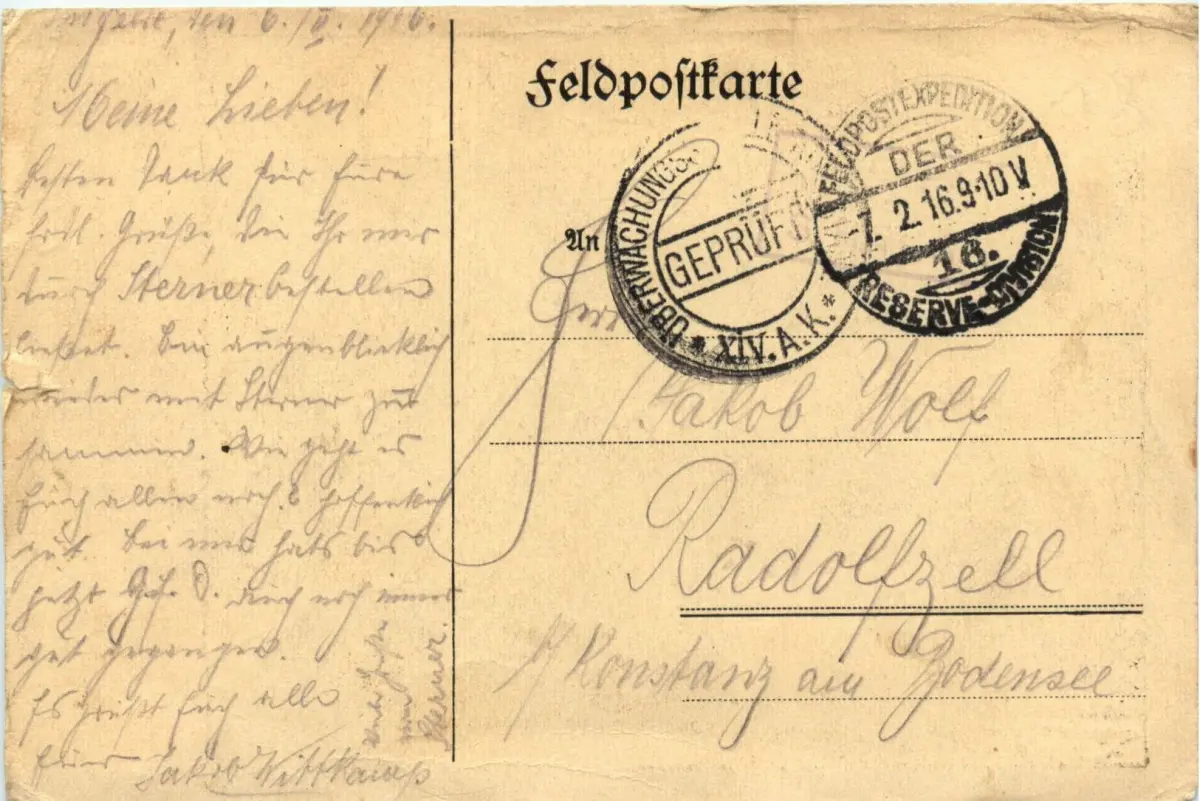 den 6./II. 1916.
Meine Lieben!
Besten Dank für Eure
frdl. Grüße, die Ihr mir
durch Sterner bestellen
ließet. Bin augenblicklich
wieder mit Sterner zu
sammen. Wie geht es
Euch allen noch? hoffentlich
gut. Bei mir hats bis
jetzt G. s. D. auch noch immer
gut gegangen.
Es grüßt Euch alle
Euer Jakob Wittkamp
Sterner.
Feldpostkarte
An
Herrn
Jakob Wolf
Radolfzell
b/ Konstanz am Bodensee.
ÜBERWACHUNGS
GEPRÜFT
* XIV. A. K. *
FELDPOSTEXPEDITION
DER
-7. 2. 16. 9-10 V.
16.
RESERVE-DIVISION